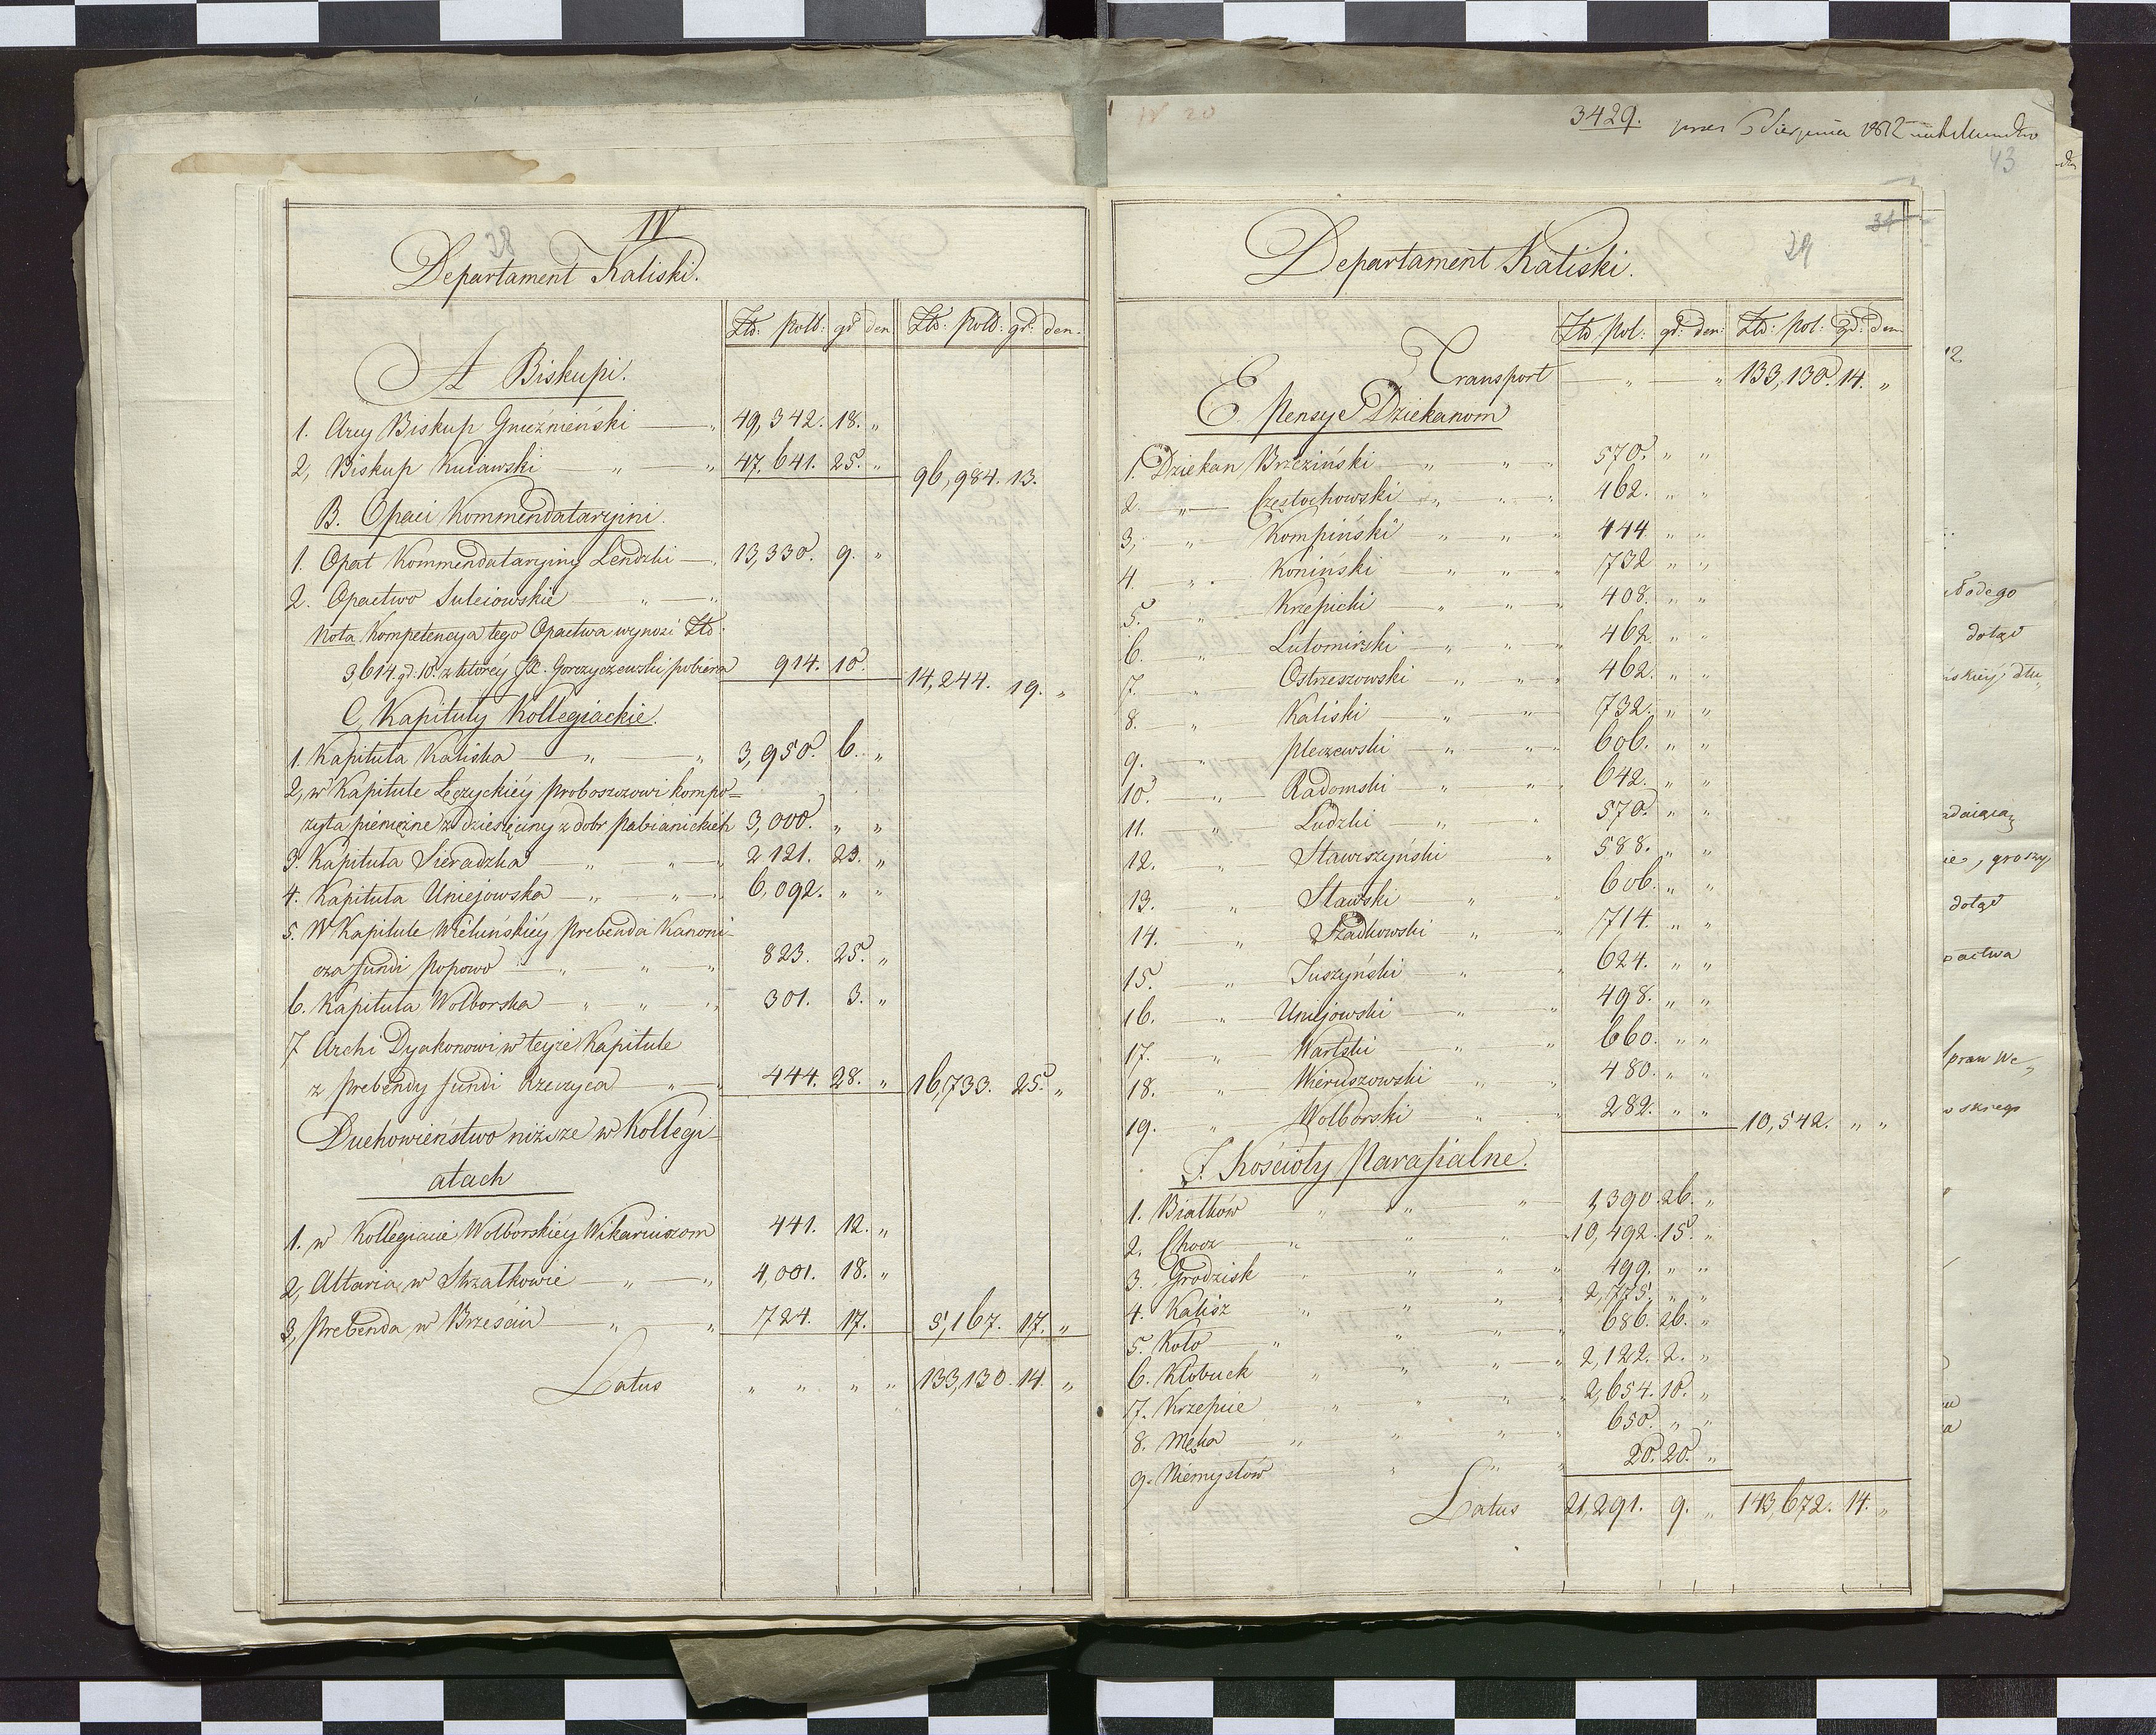 IV
28
Departament Kaliski.
Złt: Pols: gr den. Złt: Pols: gr: den.
A Biskupi.
1. Arcy Biskup Gnieźnieński — „ 49,342. 18. „
2, Biskup Kuiawski — „ — „ 47,641. 25. „ 96,984. 13.
B. Opaci Kommendataryjni.
1. Opat Kommendataryiny Lendzki — „ 13,330. 9. „
2. Opactwo Suleiowskie — „ — „
Nota Kompetencya tego Opactwa wynosi Złt:
3,614. gr. 10. z którey JX. Gorzyczewski pobiera 914. 10. 14,244. 19. „
C. Kapituły Kollegiackie.
1. Kapituła Kaliska — „ — „ 3,950. 6. „
2, w Kapitule Łęczyckiéy Proboszczowi kompo=
zyta pieniężne z dziesięciny z dobr Pabianickich 3,000. „ „
3. Kapituła Sieradzka — „ „ „ 2121. 23. „
4. Kapituła Uniejowska — „ — „ — „ 6,092. „ „
5. W Kapitule Wieluńskiéy Prebenda Kanoni-
cza fundi Popowo — „ „ „ 823. 25. „
6. Kapituła Wolborska — „ „ „ 301. 3. „
7 Archi Dyakonowi w teyże Kapitule
z Prebendy fundi Rzeczyca — „ — „ 444. 28. „ 16,733. 25. „
Duchowieństwo niższe w Kollegi=
atach
1. w Kollegiacie Wolborskiéy Wikariuszom 441. 12. „
2, Altaria w Strzałkowie — „ — „ 4,001. 18. „
3, Prebenda w Brześciu — „ „ 724. 17. 5,167. 17. „
Latus „ „ „ „ 133,130. 14. „
IV 20
3429.
43
31
29
Departament Kaliski.
Złt Pol: gr: den: Złt: Pol: gr: den
Transport — „ — „ 133,130. 14. „
E. Pensye Dziekanom
1. Dziekan Brzeziński — „ „ „ 570. „ „
2. — „ — Częstochowski — „ „ „ 462. „ „
3, „ Kompiński — „ „ „ 444. „ „
4. — „ . Koniński — „ „ „ 732 „ „
5. „ Krzepicki — „ „ „ 408. „ „
6. „ Lutomirski — „ „ „ 462. „ „
7. „ Ostrzeszowski — „ „ „ 462. „ „
8. „ Kaliski — „ „ 732. „ „
9. „ Pleszewski — „ „ „ 606. „ „
10. „ Radomski — „ „ „ 642. „ „
11. „ Ludzki „ „ 570. „ „
12. „ Stawiszyński „ 588. „ „
13. „ Stawski — „ „ 606. „ „
14. „ Szadkowski — „ „ 714. „ „
15. „ Tuszyński — „ „ 624. „ „
16. „ Uniejowski — „ „ 498. „ „
17. „ Wartski — „ „ 660. „ „
18. „ Wieruszowski — „ „ 480. „ „
19. „ Wolborski „ „ 282. „ „ 10,542. „ „
F. Kościoły Parafialne.
1. Białków „ „ „ 1,390. 26. „
2. Chocz „ „ „ 10,492. 15. „
3. Grodzisk „ „ „ „ 499. „ „
4. Kalisz „ „ „ „ 2,775. „ „
5. Koło „ „ „ „ 686. 26. „
6. Kłobuck „ „ „ „ 2,122. 2. „
7. Krzepice „ „ „ „ 2,654. 10. „
8. Męka „ „ „ „ 650. „ „
9. Niemysłów „ „ „ 20. 20. „
Latus 21,291. 9. „ 143,672. 14. „
dotąd
groszy
dotąd